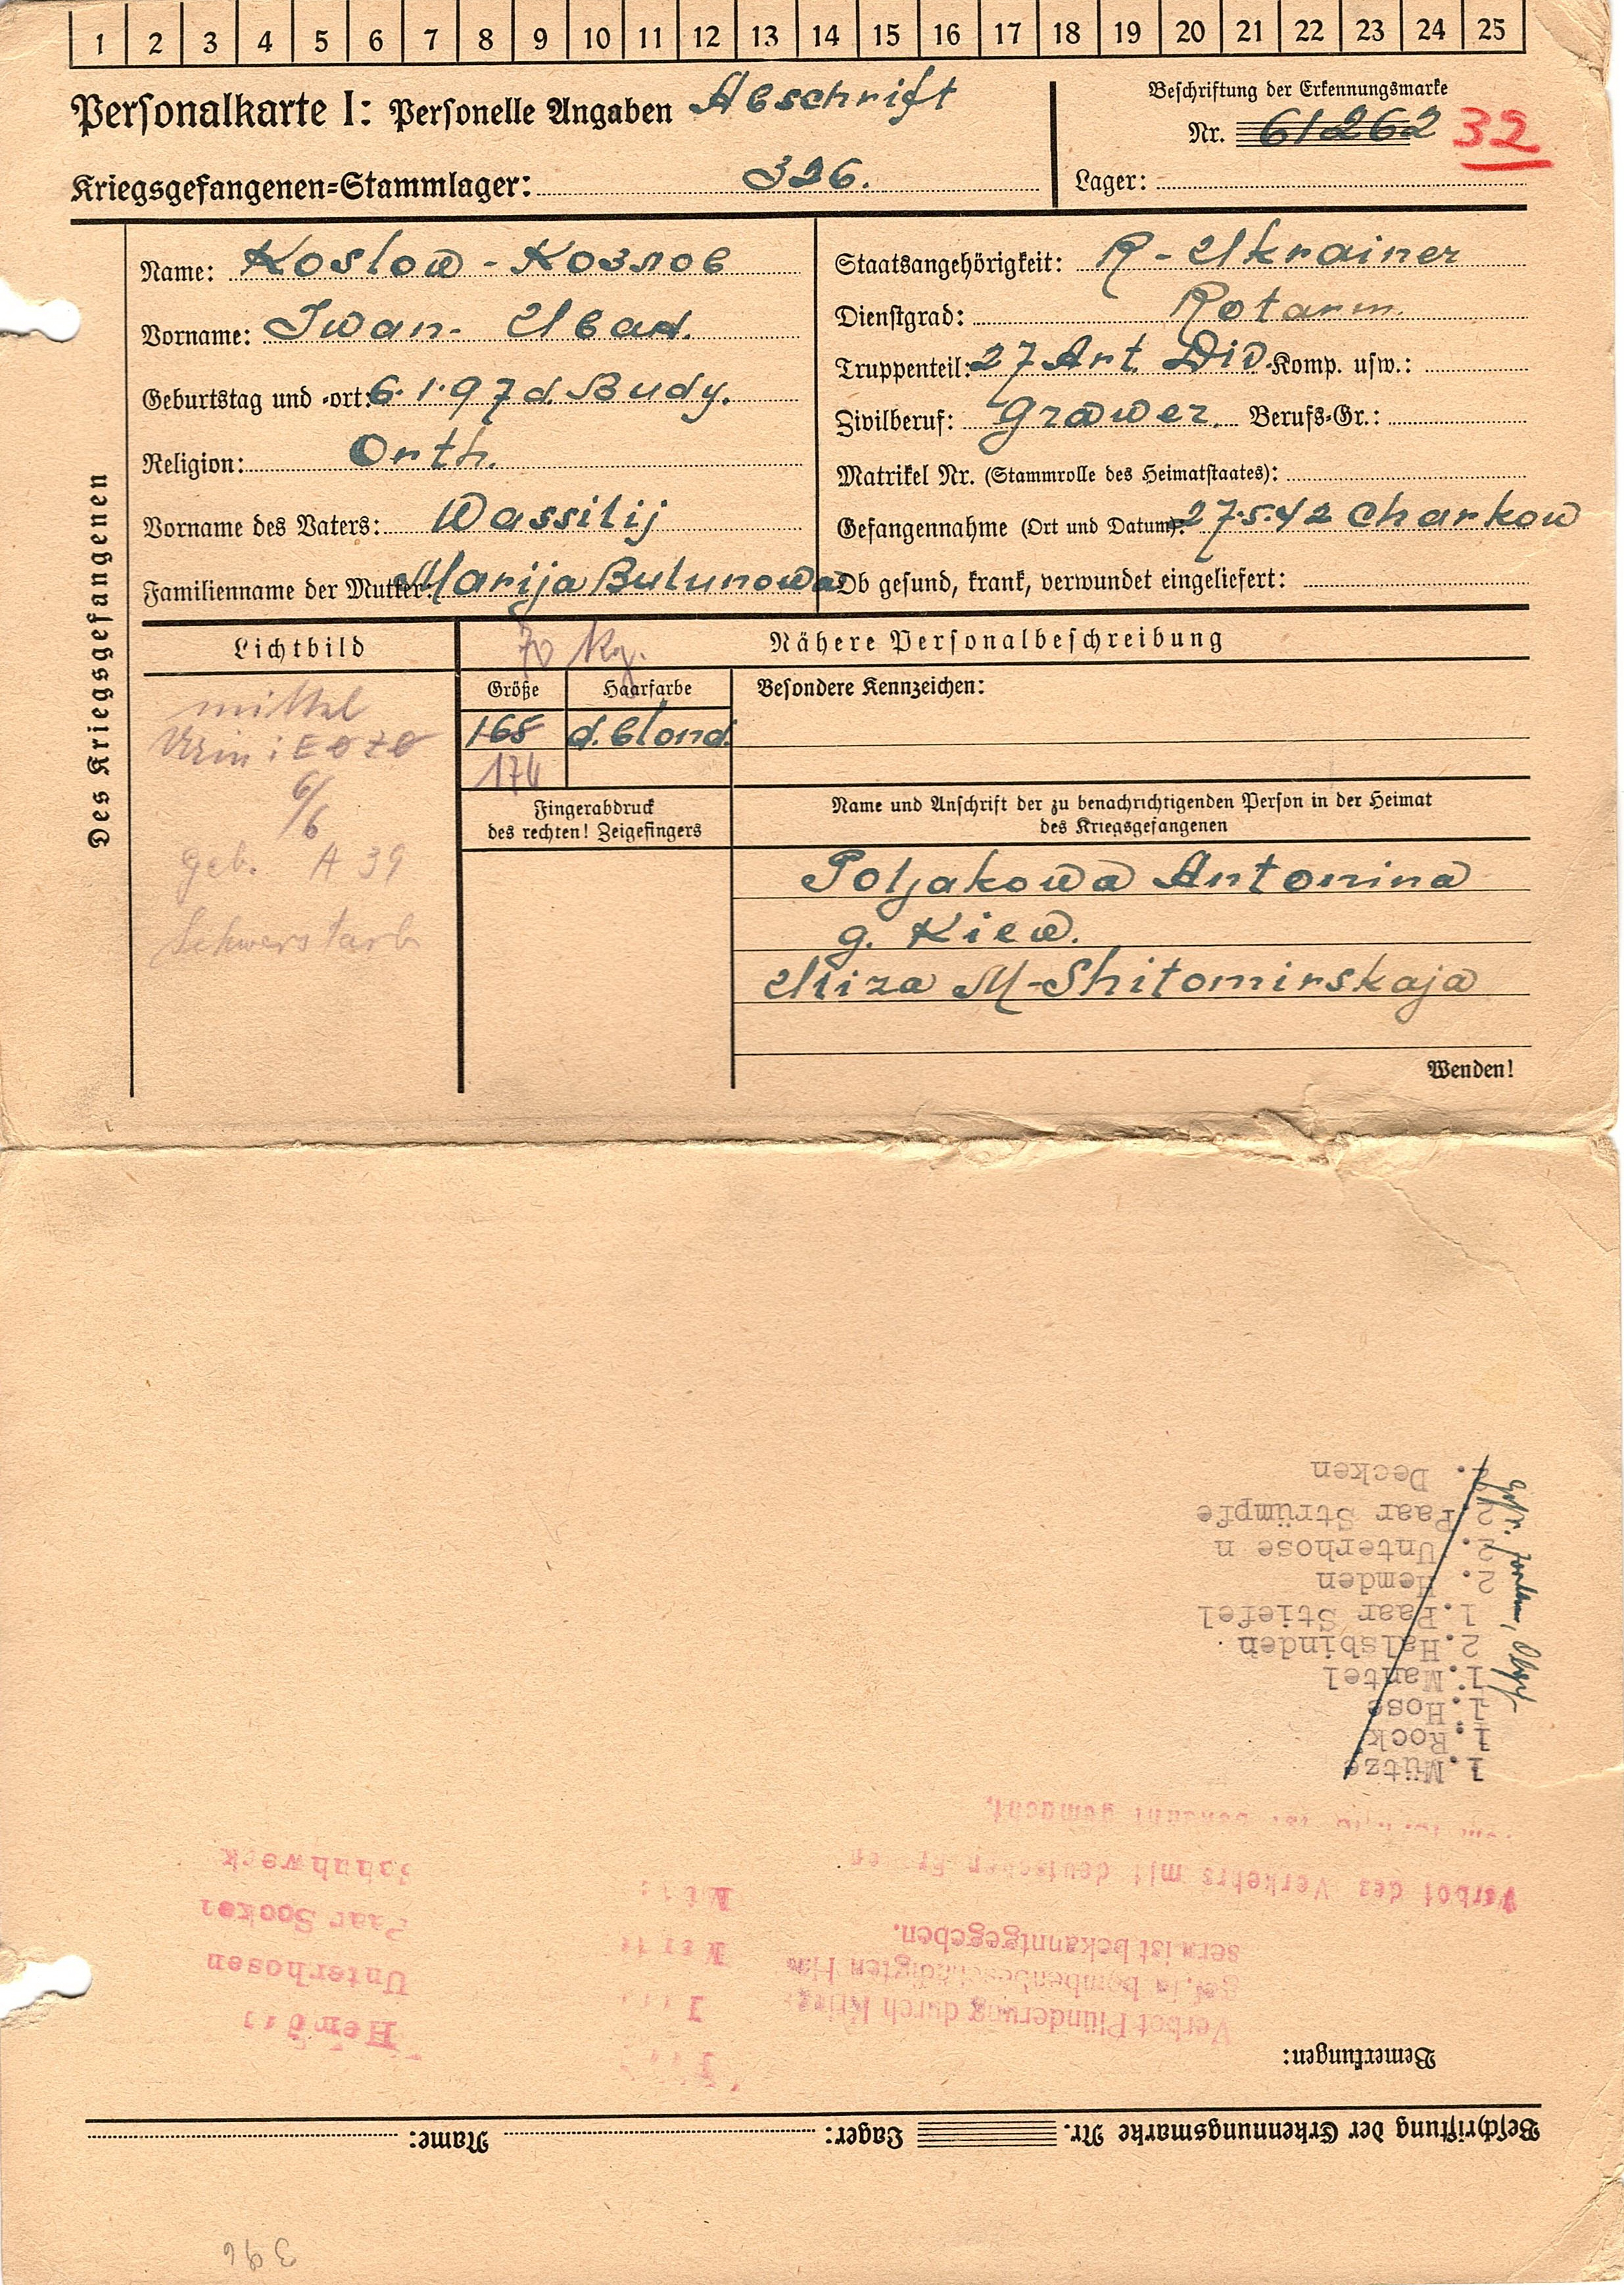 1 2 3 4 5 6 7 8 9 10 11 12 13 14 15 16 17 18 19 20 21 22 23 24 25
Personalkarte I: Personelle Angaben Abschrift
Beschriftung der Erkennungsmarke
Nr. 61262 32
Kriegsgefangenen-Stammlager: 326.
Lager:
Des Kriegsgefangenen
Name: Koslow - Козлов
Vorname: Iwan - Иван.
Geburtstag und -ort: 6.1.97 d. Budy.
Religion: Orth.
Vorname des Vaters: Wassilij
Familienname der Mutter: Marija Bulunowa
Staatsangehörigkeit: R - Ukrainer
Dienstgrad: Rotarm.
Truppenteil: 27 Art. Div. Komp. usw.:
Zivilberuf: Grawer. Berufs-Gr.:
Matrikel Nr. (Stammrolle des Heimatstaates):
Gefangennahme (Ort und Datum): 27.5.42 Charkow
Ob gesund, krank, verwundet eingeliefert:
Lichtbild
70 kg.
Nähere Personalbeschreibung
mittel
6/6
geb. A 39
Schwerstarb
Größe
Haarfarbe
Besondere Kennzeichen:
168
d. blond.
174
Fingerabdruck
des rechten! Zeigefingers
Name und Anschrift der zu benachrichtigenden Person in der Heimat
des Kriegsgefangenen
Poljakowa Antonina
g. Kiew.
Uliza M-Shitomirskaja
Wenden!
Beschriftung der Erkennungsmarke Nr. Lager: Name:
Bemerkungen:
Verbot Plünderung durch Krieg
gef. in bombenbeschädigten Häu
sern ist bekanntgegeben.
Verbot des Verkehrs mit deutschen Frauen
ist bekannt gemacht.
Hemd
Unterhosen
Paar Socken
Schuhwerk
1.Mütze
1.Rock
1.Hose
1.Mantel
2.Halsbinden.
1.Paar Stiefel
2. Hemden
2. Unterhose n
2.Paar Strümpfe
2. Decken
396